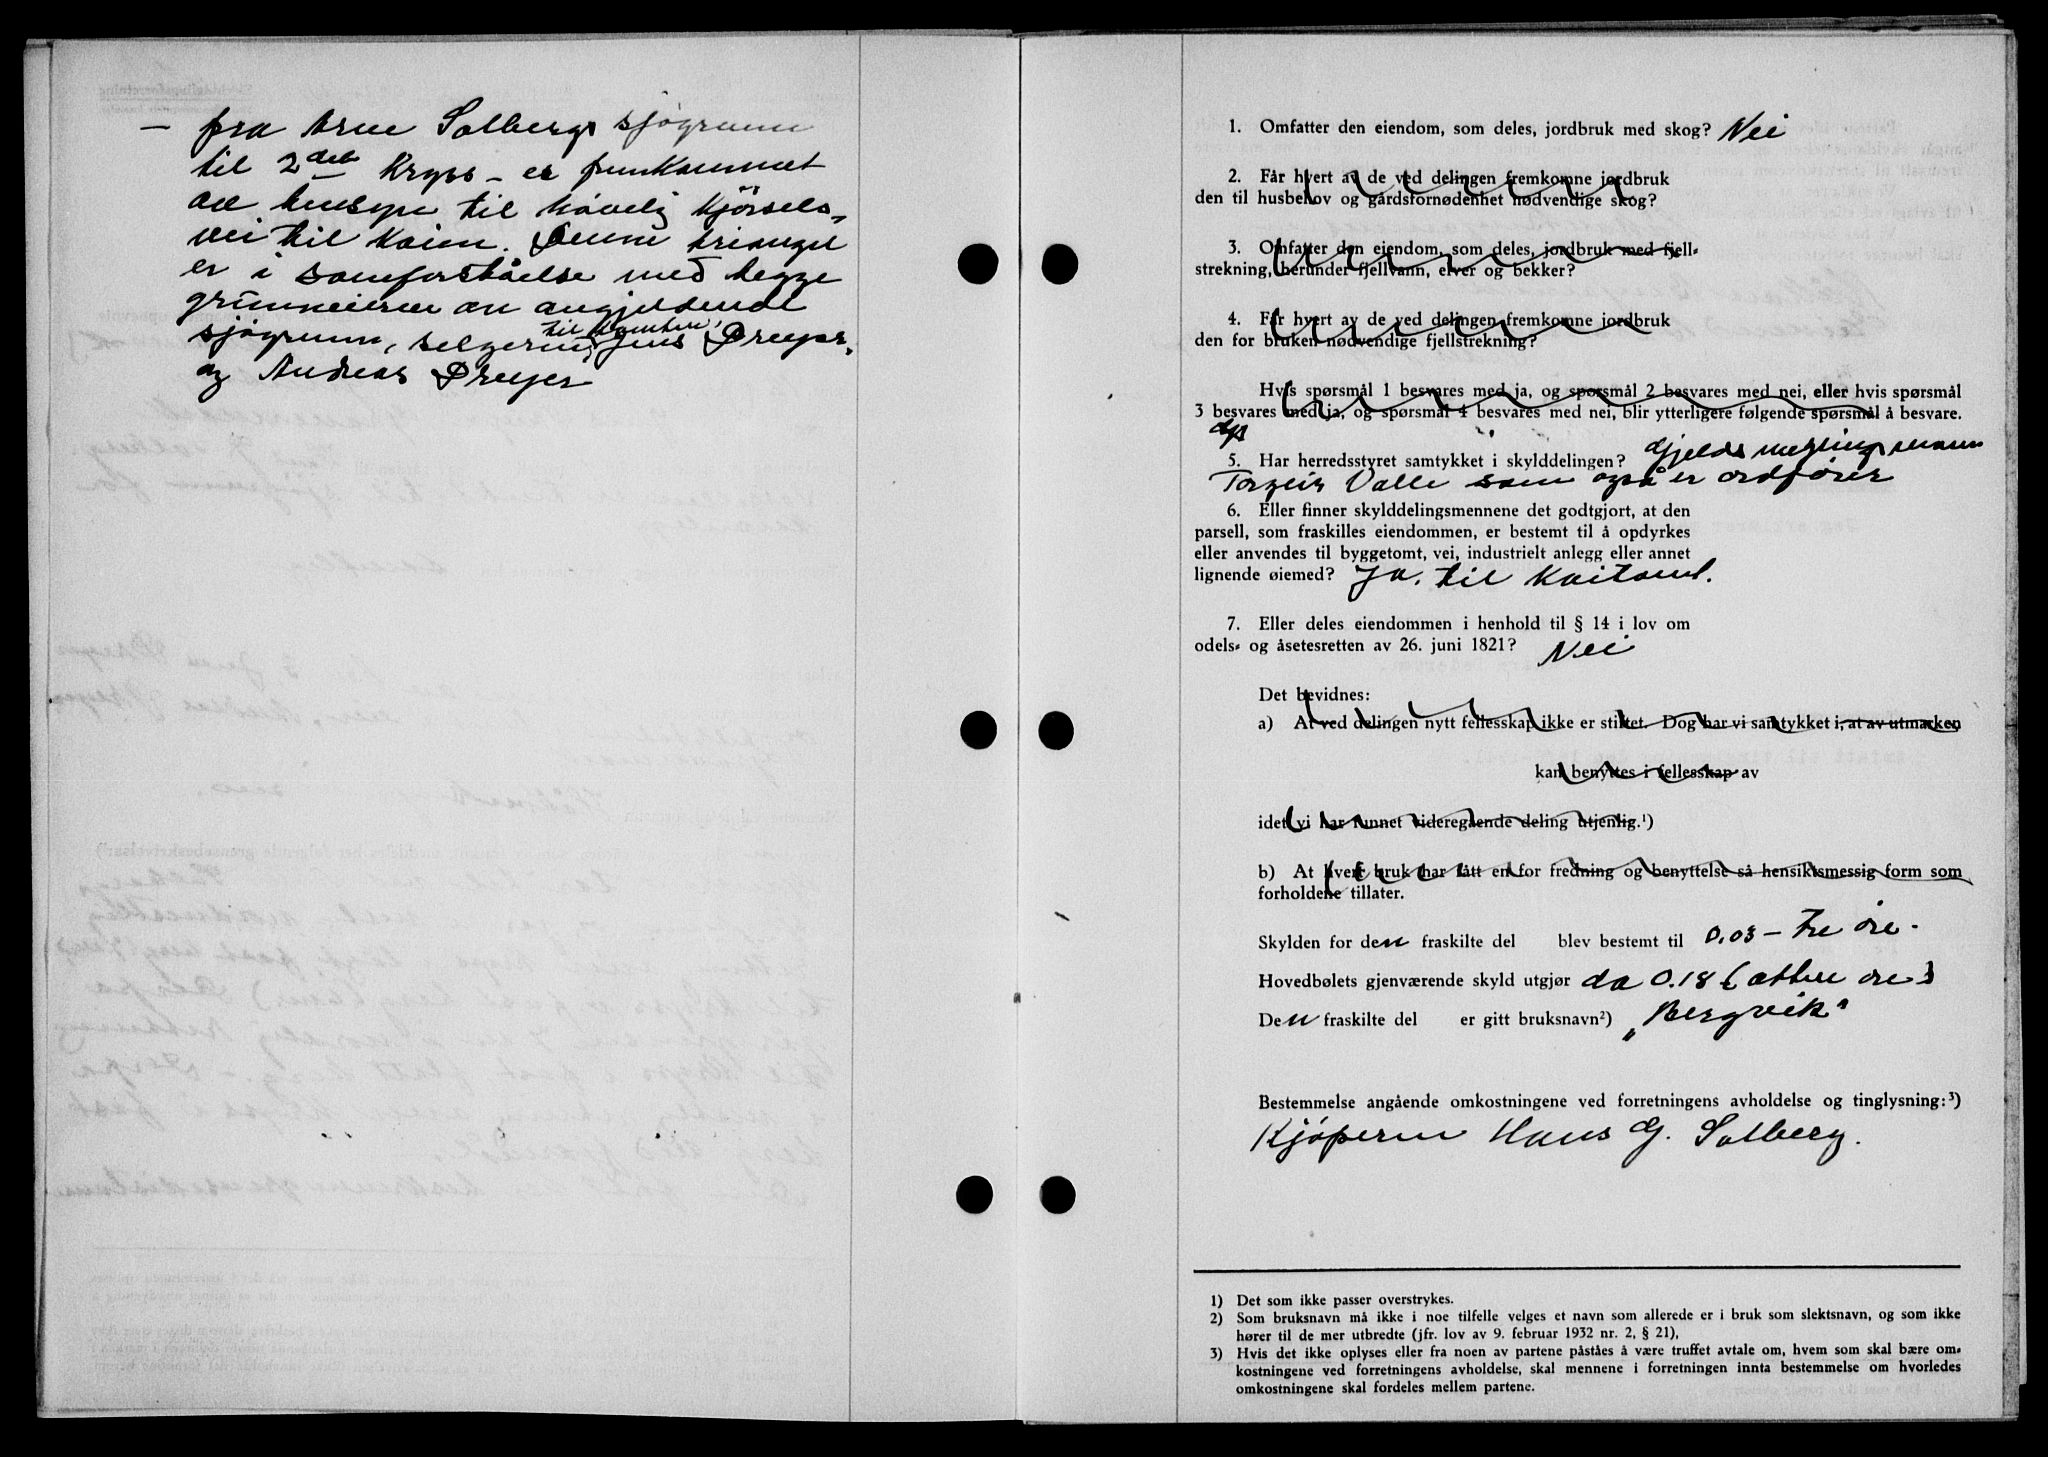 – fra Arne Solbergs sjøgrunn
til 2det Kryss – er fremkommet
av hensyn til høvelig Kjørsels-
vei til Kaien. Denne triangel
er i samforståelse med begge
grunneieren av angjeldende
sjøgrunn, selgeren Jens Dreyer
og Andreas Dreyer
1. Omfatter den eiendom, som deles, jordbruk med skog? Nei
2. Får hvert av de ved delingen fremkomne jordbruk
den til husbehov og gårdsfornødenhet nødvendige skog?
3. Omfatter den eiendom, som deles, jordbruk med fjell-
strekning, herunder fjellvann, elver og bekker?
4. Får hvert av de ved delingen fremkomne jordbruk
den for bruken nødvendige fjellstrekning?
Hvis spørsmål 1 besvares med ja, og spørsmål 2 besvares med nei, eller hvis spørsmål
3 besvares med ja, og spørsmål 4 besvares med nei, blir ytterligere følgende spørsmål å besvare.
5. Har herredsstyret samtykket i skylddelingen? Gjeldsmeglingsmann
Torgeir Valle som også er ordfører
6. Eller finner skylddelingsmennene det godtgjort, at den
parsell, som fraskilles eiendommen, er bestemt til å opdyrkes
eller anvendes til byggetomt, vei, industrielt anlegg eller annet
lignende øiemed? Ja. til Kaitomt.
7. Eller deles eiendommen i henhold til § 14 i lov om
odels- og åsetesretten av 26. juni 1821? Nei
Det bevidnes:
a) At ved delingen nytt fellesskap ikke er stiftet. Dog har vi samtykket i, at av utmarken
kan benyttes i fellesskap av
idet vi har funnet videregående deling utjenlig.¹)
b) At hvert bruk har fått en for fredning og benyttelse så hensiktsmessig form som
forholdene tillater.
Skylden for den fraskilte del blev bestemt til 0.03 – tre øre.
Hovedbølets gjenværende skyld utgjør da 0.18 (atten øre)
Den fraskilte del er gitt bruksnavn²) „Bergvik"
Bestemmelse angående omkostningene ved forretningens avholdelse og tinglysning:³)
Kjøperen Hans G. Solberg.
1) Det som ikke passer overstrykes.
2) Som bruksnavn må ikke i noe tilfelle velges et navn som allerede er i bruk som slektsnavn, og som ikke
hører til de mer utbredte (jfr. lov av 9. februar 1932 nr. 2, § 21),
3) Hvis det ikke oplyses eller fra noen av partene påståes å være truffet avtale om, hvem som skal bære om-
kostningene ved forretningens avholdelse, skal mennene i forretningen innta bestemmelse om hvorledes
omkostningene skal fordeles mellem partene.